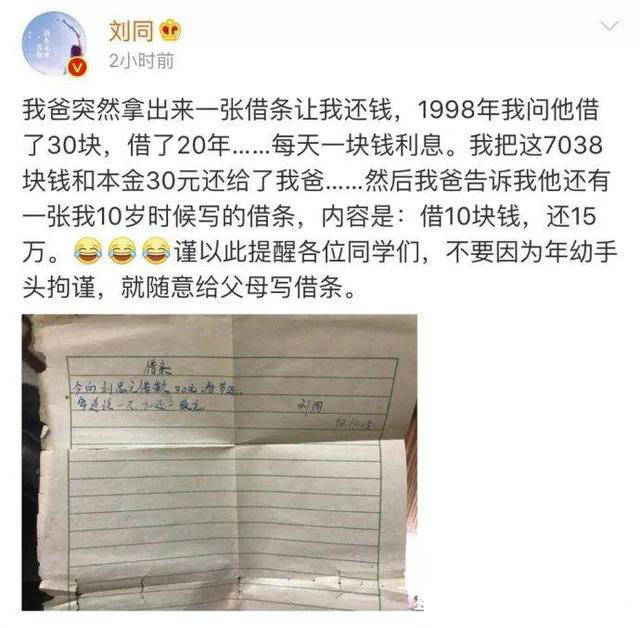 刘同
2小时前
我爸突然拿出来一张借条让我还钱，1998年我问他借
了30块，借了20年……每天一块钱利息。我把这7038
块钱和本金30元还给了我爸……然后我爸告诉我他还有
一张我10岁时候写的借条，内容是：借10块钱，还15
万。😂😂😂谨以此提醒各位同学们，不要因为年幼手
头拘谨，就随意给父母写借条。
借条
今向刘忠元借款30元,春节还,
每迟一天
刘同